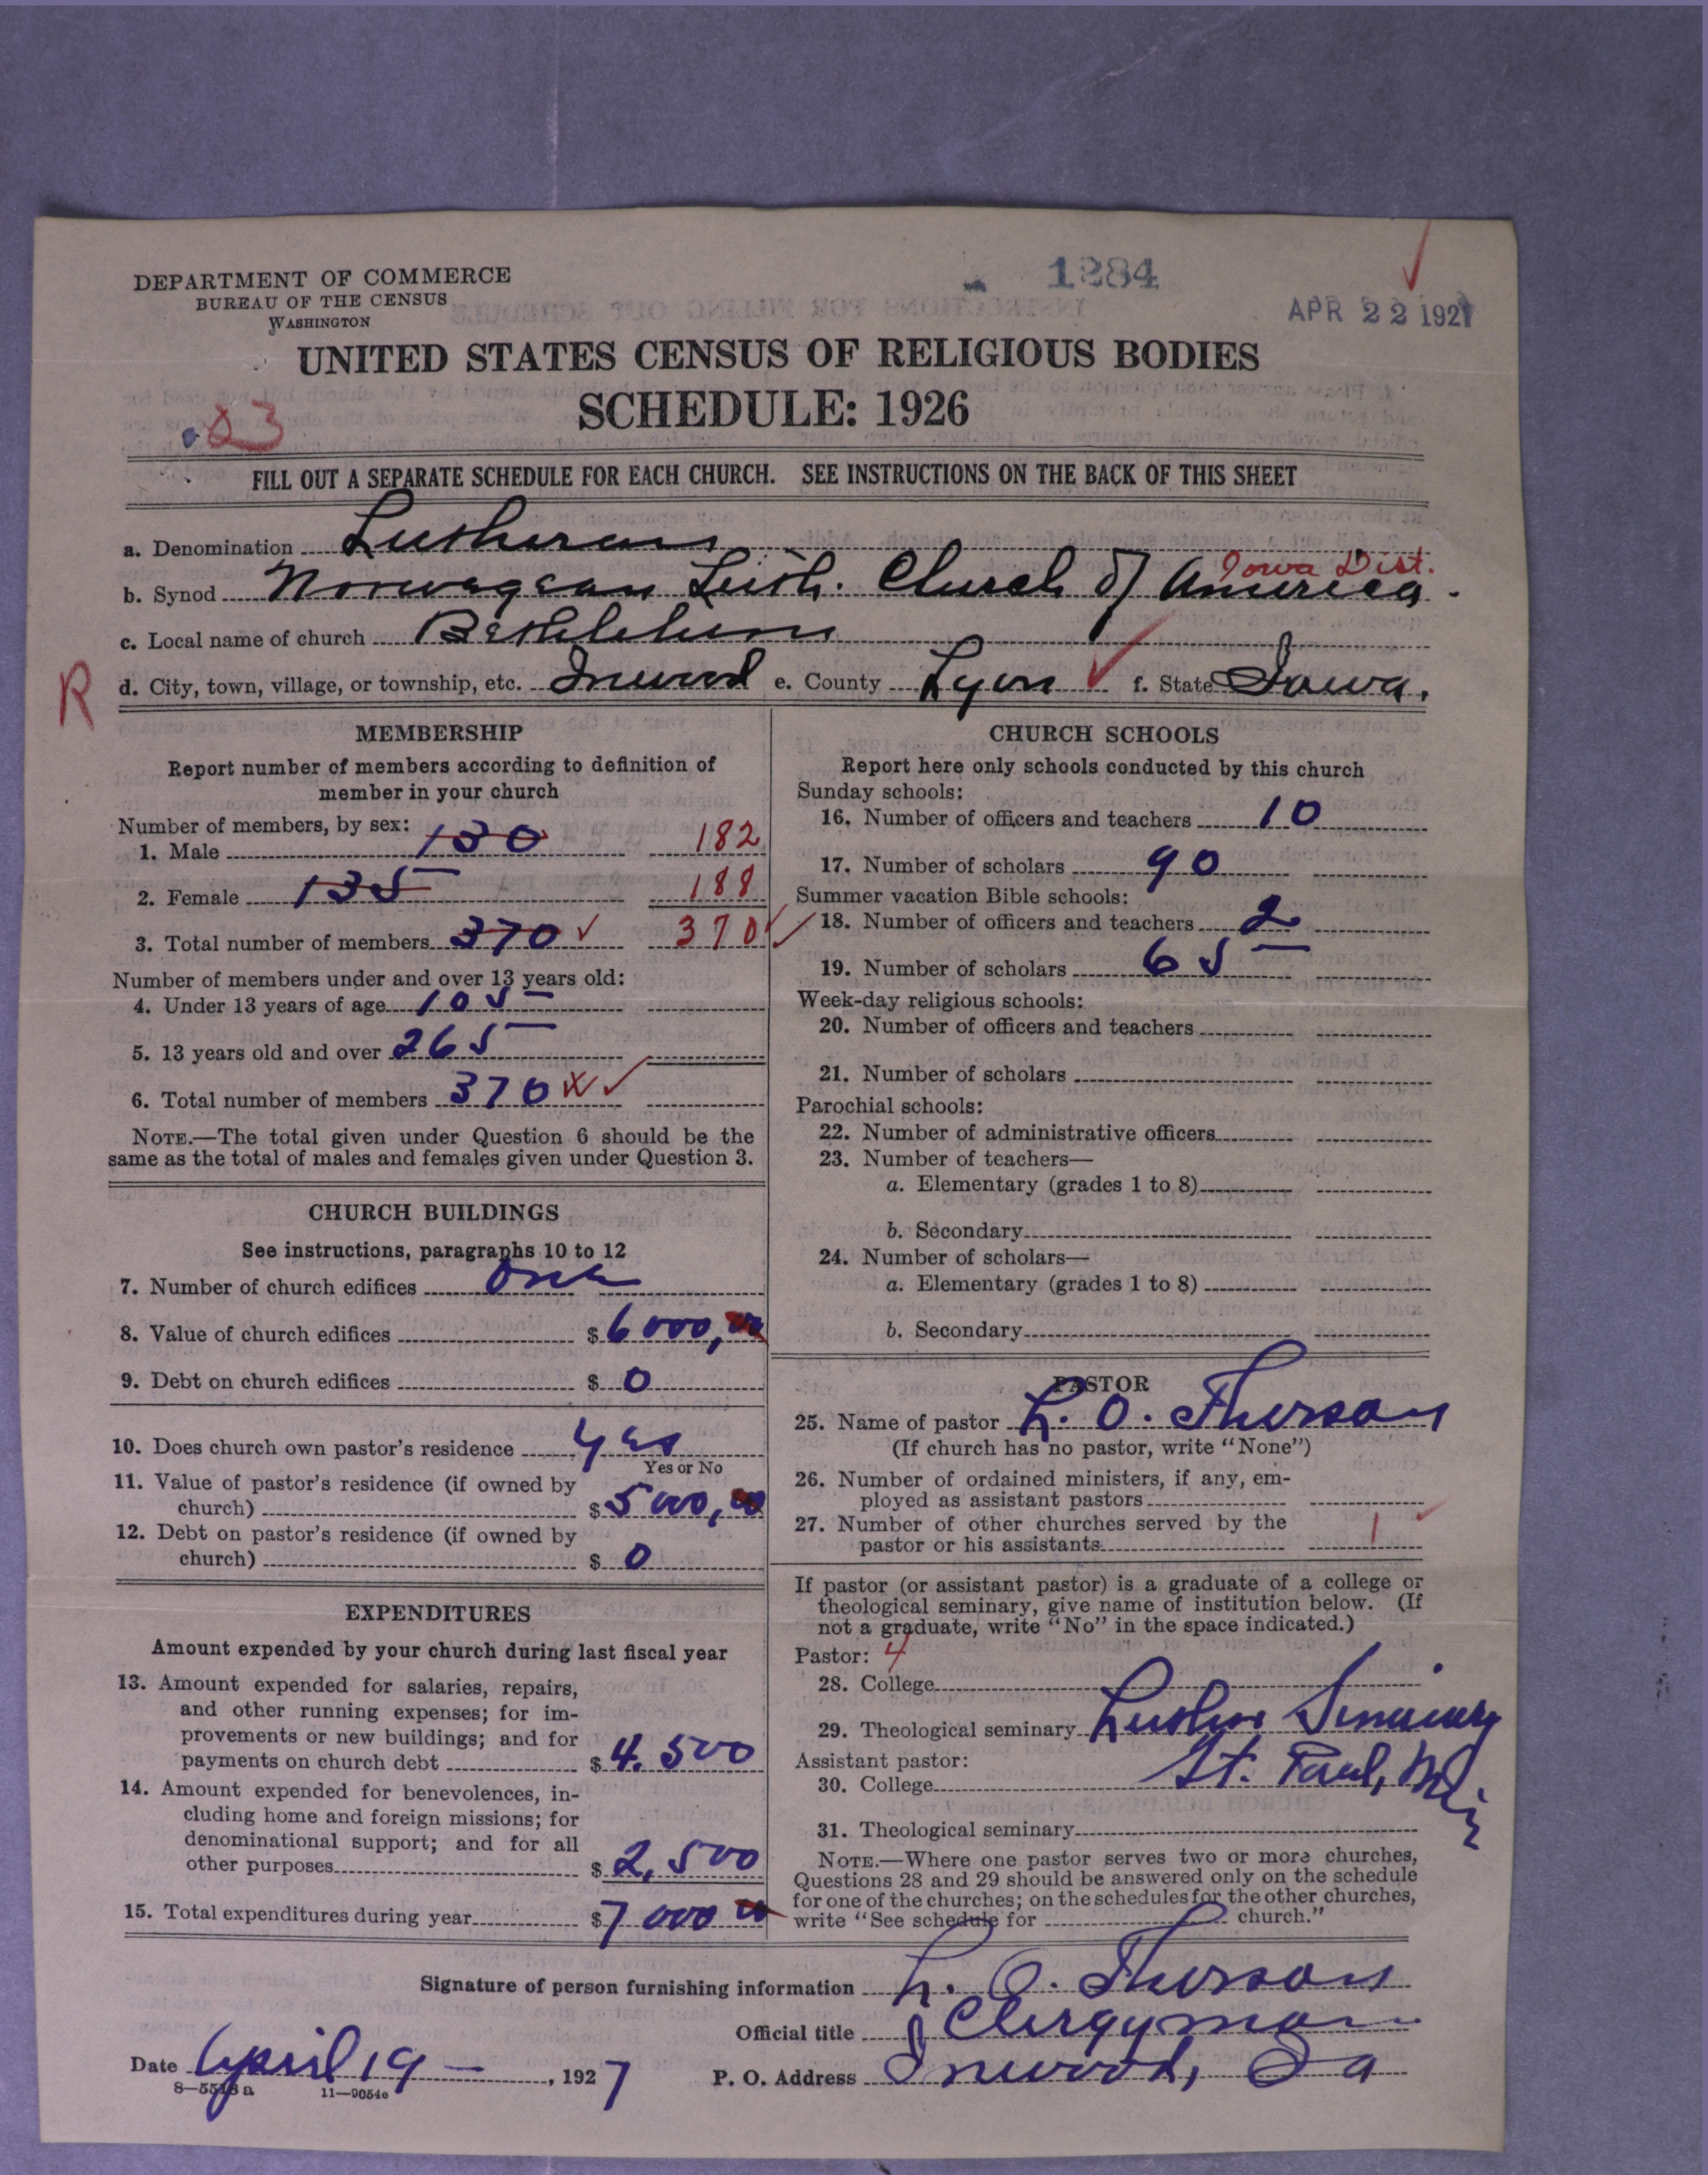 DEPARTMENT OF COMMERCE
BUREAU OF THE CENSUS
WASHINGTON
1284
APR 22 1927
UNITED STATES CENSUS OF RELIGIOUS BODIES
SCHEDULE: 1926
23
FILL OUT A SEPARATE SCHEDULE FOR EACH CHURCH. SEE INSTRUCTIONS ON THE BACK OF THIS SHEET
a. Denomination Lutheran
Iowa Dist.
b. Synod Norwegean Luth. Church of America.
c. Local name of church Bethlehem
R
d. City, town, village, or township, etc. Inwood e. County Lyon f. State Iowa.
MEMBERSHIP
Report number of members according to definition of
member in your church
Number of members, by sex:
1. Male 130 182
2. Female 135 188
3. Total number of members 370 ✓ 370 ✓
Number of members under and over 13 years old:
4. Under 13 years of age 105
5. 13 years old and over 265
6. Total number of members 370 x ✓
NOTE.—The total given under Question 6 should be the
same as the total of males and females given under Question 3.
CHURCH BUILDINGS
See instructions, paragraphs 10 to 12
7. Number of church edifices one
8. Value of church edifices $ 6000,00
9. Debt on church edifices $ 0
10. Does church own pastor's residence yes
Yes or No
11. Value of pastor's residence (if owned by
church) $ 5000,00
12. Debt on pastor's residence (if owned by
church) $ 0
EXPENDITURES
Amount expended by your church during last fiscal year
13. Amount expended for salaries, repairs,
and other running expenses; for im-
provements or new buildings; and for
payments on church debt $ 4.500
14. Amount expended for benevolences, in-
cluding home and foreign missions; for
denominational support; and for all
other purposes $ 2,500
15. Total expenditures during year $ 7000 00
CHURCH SCHOOLS
Report here only schools conducted by this church
Sunday schools:
16. Number of officers and teachers 10
17. Number of scholars 90
Summer vacation Bible schools:
18. Number of officers and teachers 2
19. Number of scholars 65
Week-day religious schools:
20. Number of officers and teachers
21. Number of scholars
Parochial schools:
22. Number of administrative officers
23. Number of teachers—
a. Elementary (grades 1 to 8)
b. Secondary
24. Number of scholars—
a. Elementary (grades 1 to 8)
b. Secondary
PASTOR
25. Name of pastor L. O. Thorson
(If church has no pastor, write "None")
26. Number of ordained ministers, if any, em-
ployed as assistant pastors
27. Number of other churches served by the
pastor or his assistants 1
If pastor (or assistant pastor) is a graduate of a college or
theological seminary, give name of institution below. (If
not a graduate, write "No" in the space indicated.)
Pastor: 4
28. College
29. Theological seminary Luther Seminary
Assistant pastor:
St. Paul, Min
30. College
31. Theological seminary
NOTE.—Where one pastor serves two or more churches,
Questions 28 and 29 should be answered only on the schedule
for one of the churches; on the schedules for the other churches,
write "See schedule for church."
Signature of person furnishing information L. O. Thorson
Official title Clergyman
Date April 19 - , 1927 P. O. Address Inwood, Ia
8—5518 a 11—9054c